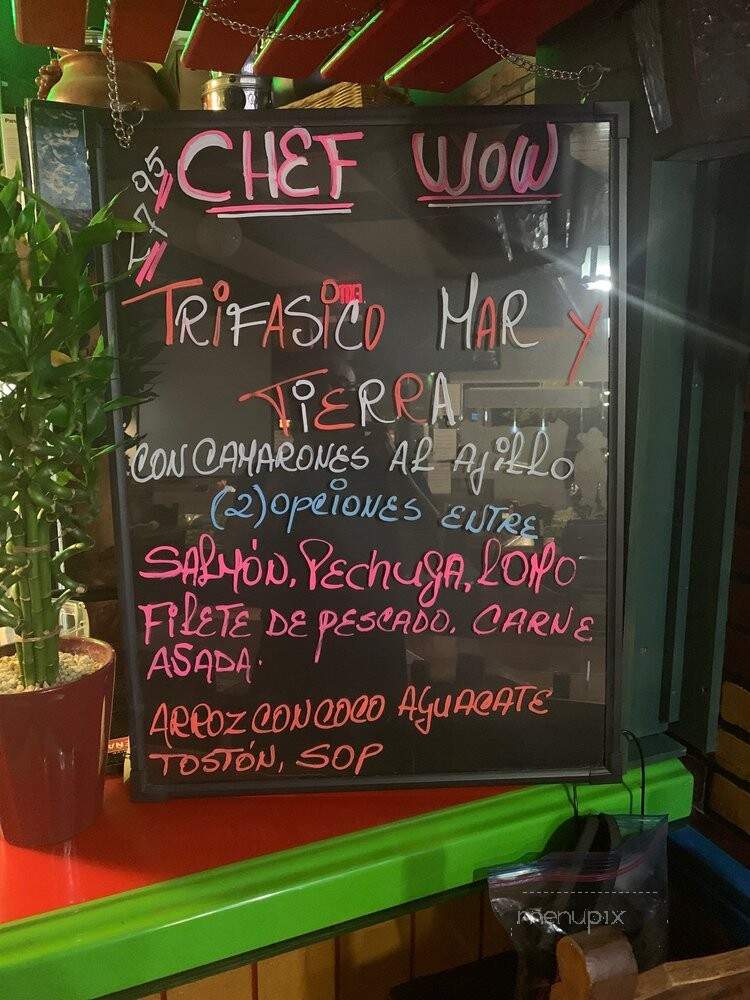 CHEF WOW
17 95
TRiFASiCO MAR y
TiERRA
CON CAMARONES AL AjiLLO
(2) OPCiONES ENTRE
SALMÓN, PEChUgA, LOMO
FiLETE DE PESCADO. CARNE
ASADA.
ARROZ CON COCO AgUACATE
TOSTÓN, SOP
menupix